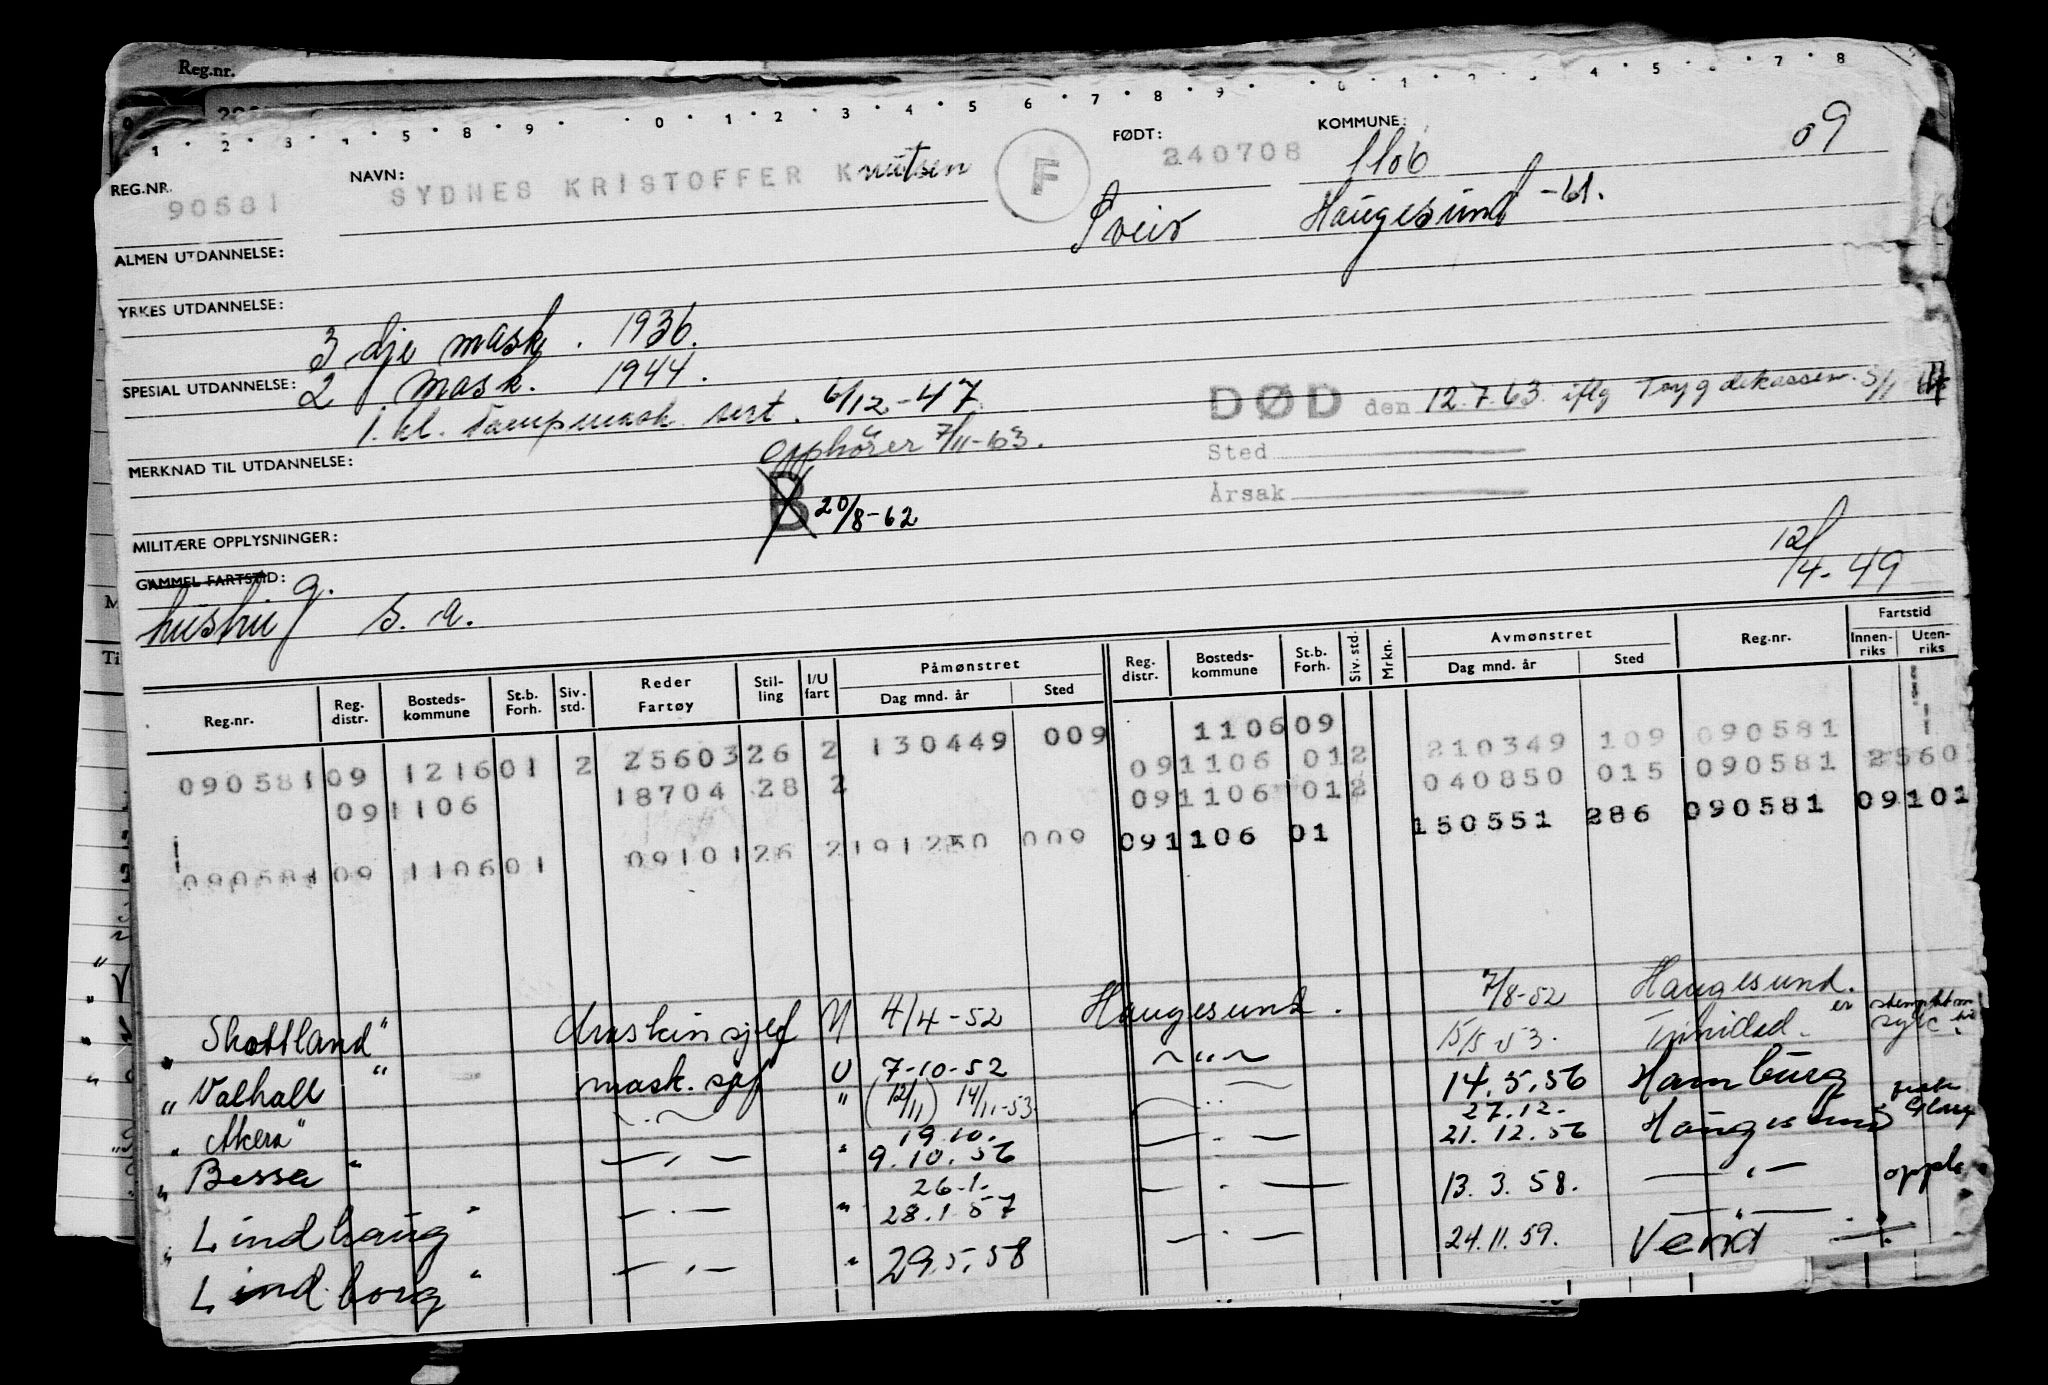 Reg.nr.
1 · 2 · 3 · 5 · 8 · 9 · 0 · 1 · 2 · 3 · 4 · 5 · 6 · 7 · 8 · 9 · 0 · 1 · 4 · 5 · 7 · 8
REG.NR. 90581
NAVN: SYDNES KRISTOFFER Knutsen
F
FØDT: 240708
KOMMUNE: 1106
09
Sveio Haugesund -61.
ALMEN UTDANNELSE:
YRKES UTDANNELSE:
3 dje mask. 1936.
SPESIAL UTDANNELSE: 2 mask. 1944.
1. kl. Dampmask. sert. 6/12-47
DØD den 12.7.63. iflg Trygdekassen 5/1
opphører 7/11-63.
Sted
MERKNAD TIL UTDANNELSE:
B 20/8-62
Årsak
MILITÆRE OPPLYSNINGER:
GAMMEL FARTSTID: g.
12/4-49
S. a.
Reg.nr. Reg. distr. Bosteds-kommune St.b. Forh. Siv. std. Reder Fartøy Stil-ling I/U fart Påmønstret Dag mnd. år Sted Reg. distr. Bosteds-kommune St.b. Forh. Siv. std. Mrkn. Avmønstret Dag mnd. år Sted Reg.nr. Fartstid Innen-riks Uten-riks
110609
090581 09 121601 2 25603 26 2 130449 009 091106 012 210349 109 090581
091106 18704 28 2 091106 012 040850 015 090581 2560
090581 09 110601 09101 26 2 191250 009 091106 01 150551 286 090581 09101
" Skottland" Maskinsjef U 4/4-52 Haugesund. 7/8-52 Haugesund.
" Valhall " mask. sjef U 7-10-52 — " — 15/5 53. Trinidad.
" Akera" — . — " (12/11) 14/11-53 — " — 14.5.56 Hamburg
" Bessa " — . — " 19.10. 9.10.56 — . — 27.12. 21.12.56 Haugesund
" Lindhaug " — . — " 26.1. 28.1.57 — . — 13.3.58. — " — oppl.
" Lindborg " — . — " 29.5.58 — . — 24.11.59. — " —